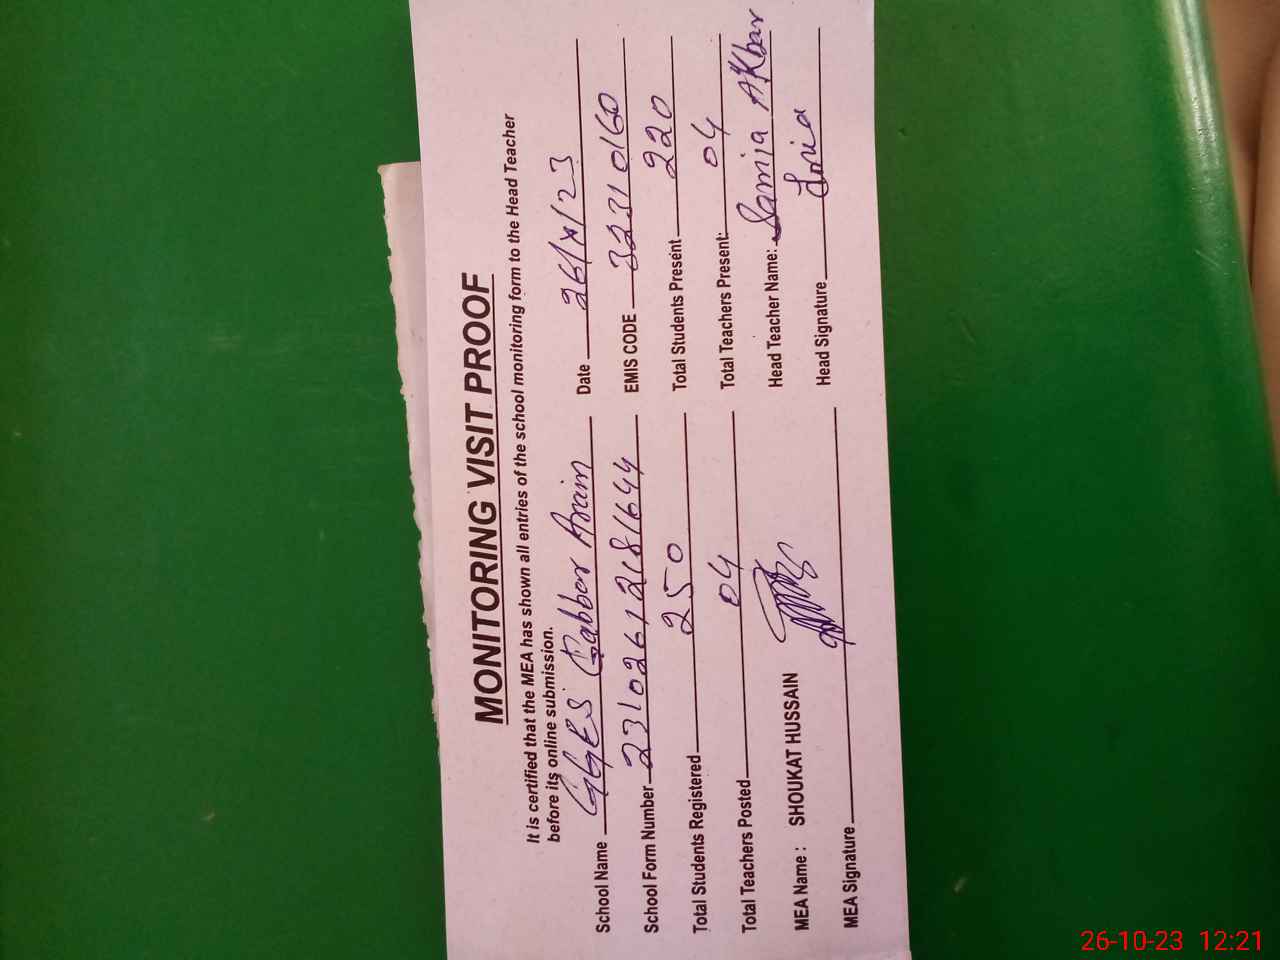 MONITORING VISIT PROOF
It is certified that the MEA has shown all entries of the school monitoring form to the Head Teacher
before its online submission.
School Name GGES Gabbar Arain Date 26/x/23
School Form Number 2310261218/644 EMIS CODE 32310160
Total Students Registered 250 Total Students Present 220
Total Teachers Posted 04 Total Teachers Present: 04
MEA Name : SHOUKAT HUSSAIN Head Teacher Name: Samija Akbar
MEA Signature Head Signature
26-10-23 12:21